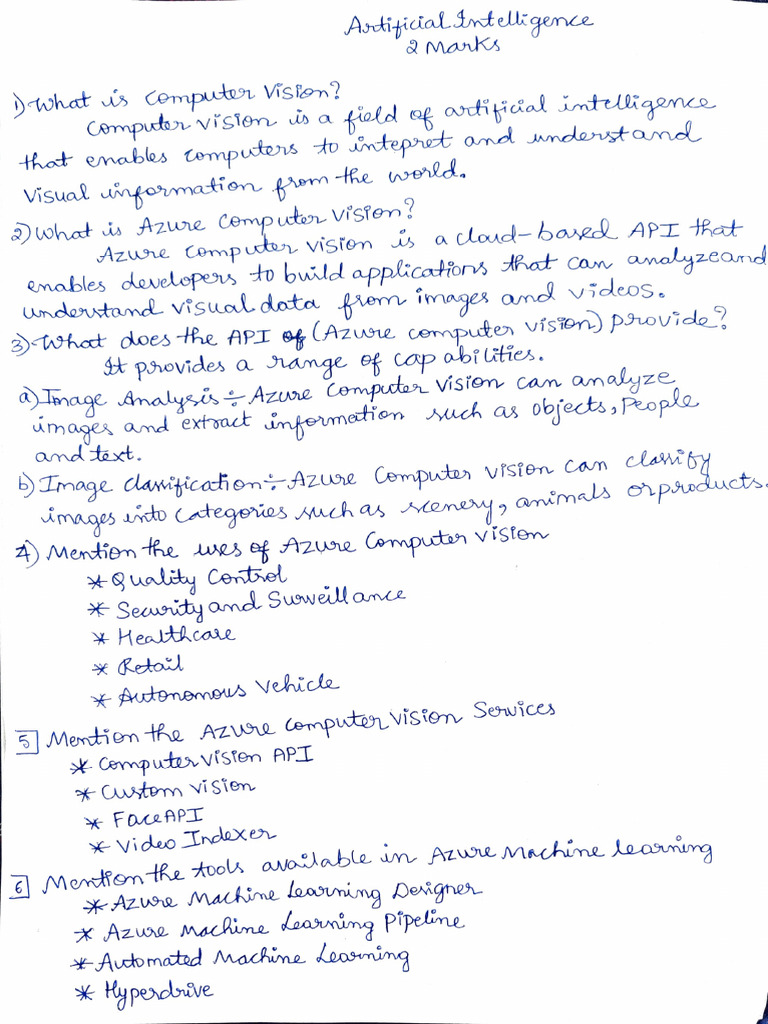 Artificial Intelligence
2 Marks
1) What is computer vision?
Computer vision is a field of artificial intelligence
that enables computers to intepret and understand
visual information from the world.
2) What is Azure Computer Vision?
Azure computer vision is a cloud-based API that
enables developers to build applications that can analyze and
understand visual data from images and videos.
3) What does the API of (Azure computer vision) provide?
It provides a range of capabilities.
a) Image Analysis ÷ Azure Computer Vision can analyze
images and extract information such as objects, people
and text.
b) Image classification ÷ Azure Computer vision can classify
images into categories such as scenery, animals or products.
4) Mention the uses of Azure Computer vision
* Quality Control
* Security and Surveillance
* Healthcare
* Retail
* Autonomous Vehicle
5 Mention the Azure Computer Vision Services
* Computer vision API
* Custom vision
* Face API
* Video Indexer
6 Mention the tools available in Azure Machine learning
* Azure Machine Learning Designer
* Azure Machine Learning Pipeline
* Automated Machine Learning
* Hyperdrive